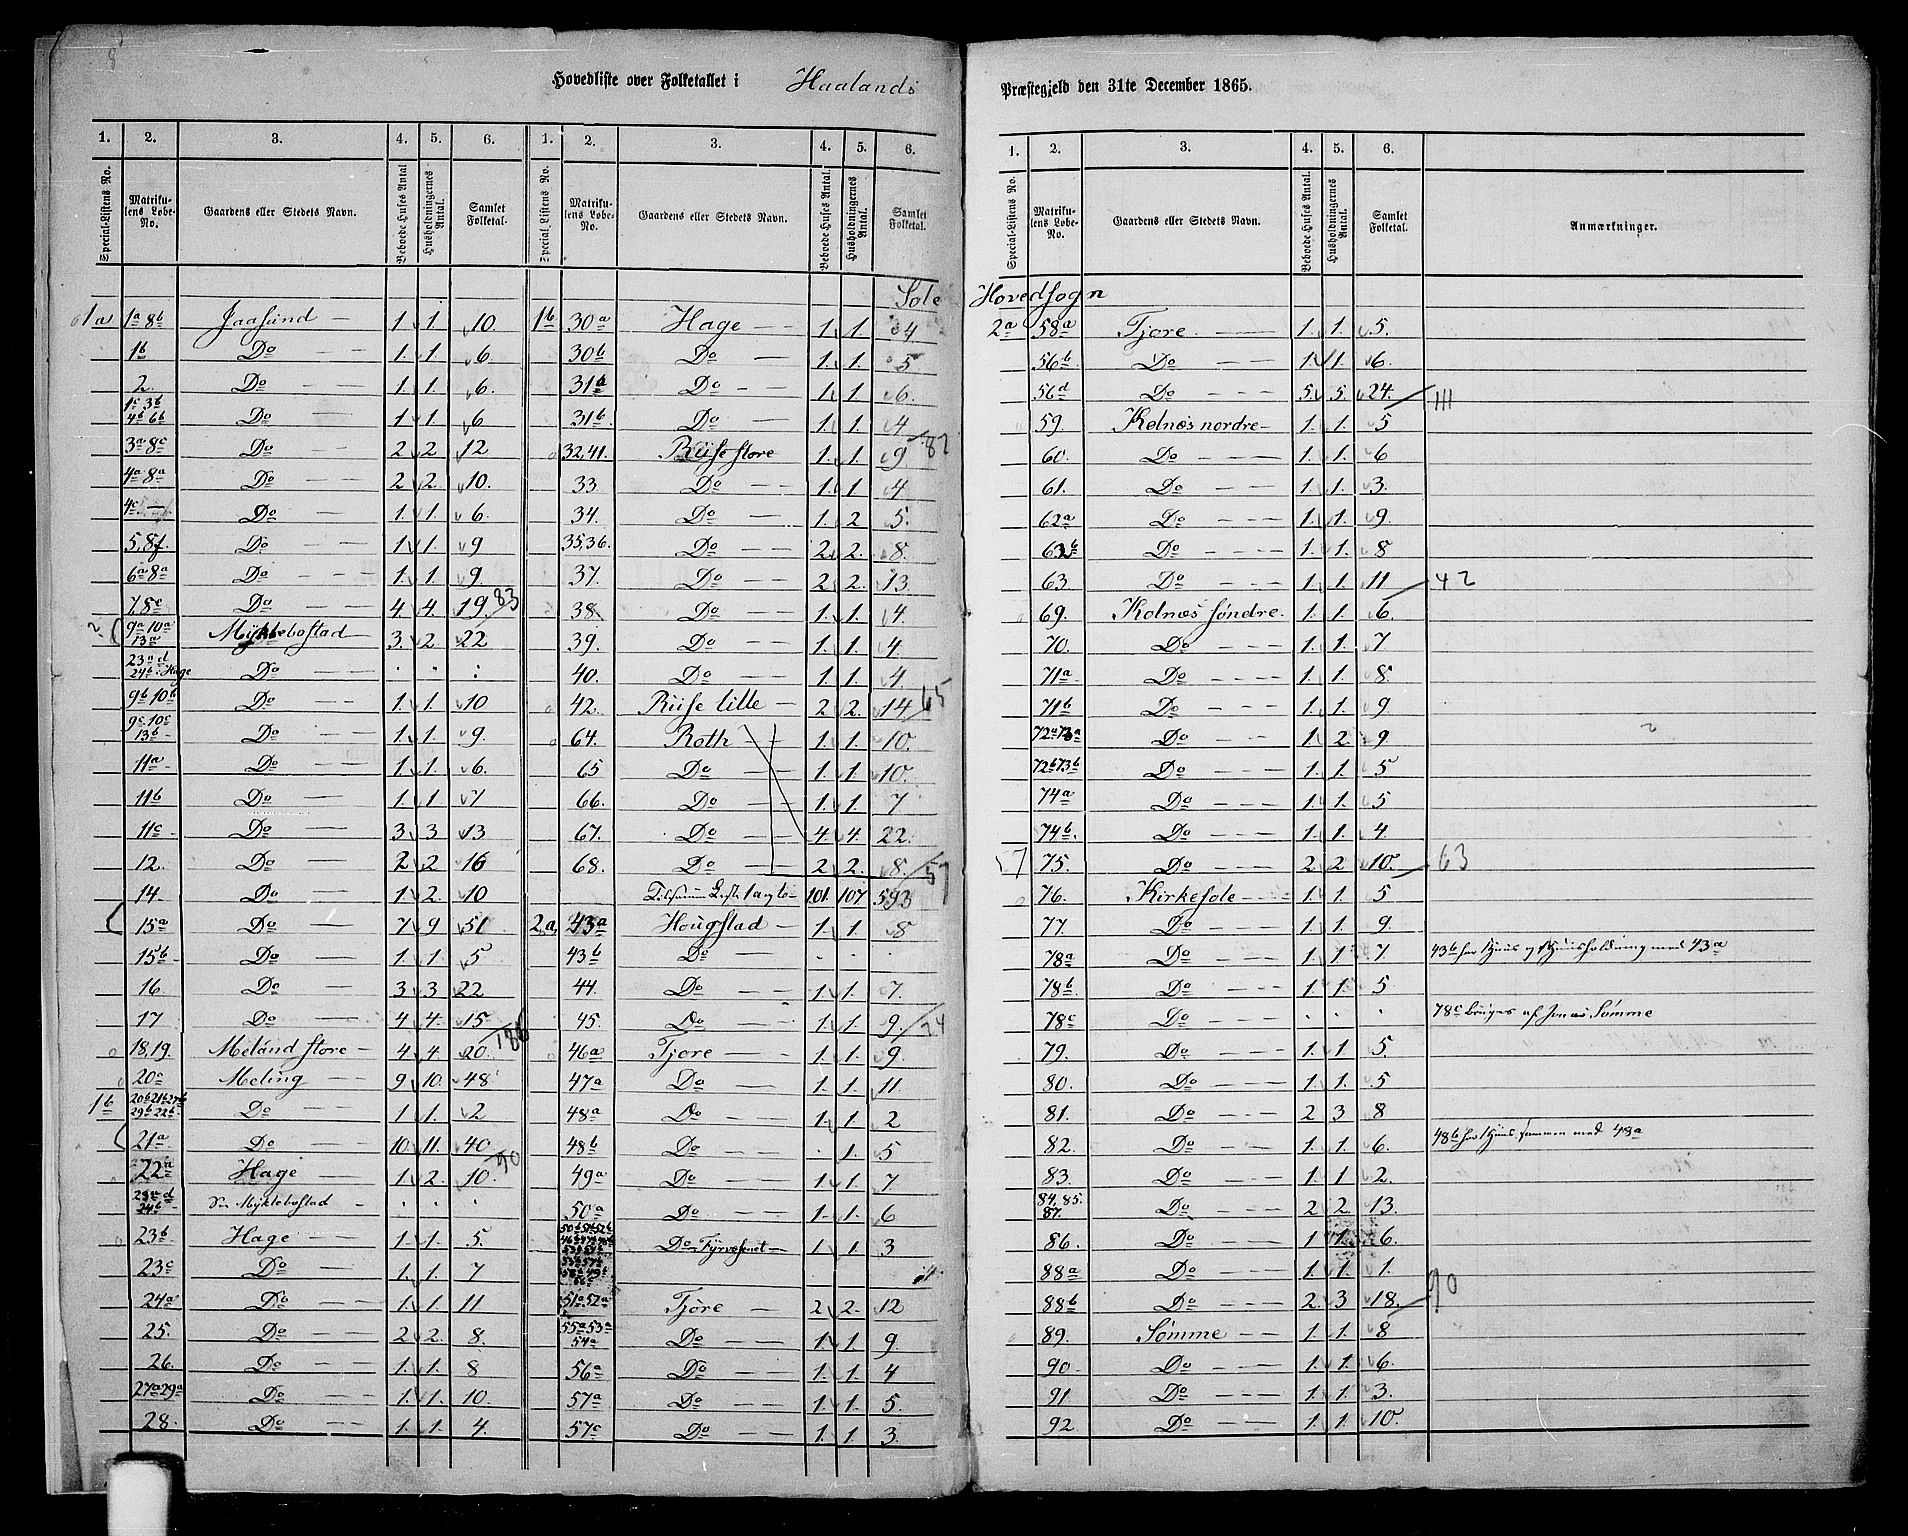 Hovedliste over Folketallet i Haalands Præstegjeld den 31te December 1865.
1. 2. 3. 4. 5. 6. 1. 2. 3. 4. 5. 6.
Special-Listens No. Matrikulens Løbe-No. Gaardens eller Stedets Navn. Beboede Huses Antal Husholdningernes Antal. Samlet Folketal.
Special Listens No. Matrikulens Løbe-No. Gaardens eller Stedets Navn. Beboede Huses Antal. Husholdningernes Antal. Samlet Folketal.
Sole
1a 1a 8b Jaasund 1 1. 10 1b 30a Hage 1. 1. 4
1b Do 1. 1. 6. 30b Do 1 1. 5
2. Do 1 1. 6. 31a Do 1 1. 6.
1c 3b 4b 6b Do 1 1. 6 31b. Do 1 1. 4
3a 8c Do 2 2 12 32,41. Riise store 1. 1. 9. 82
4a 8a Do 2 2. 10. 33 Do 1. 1. 4
4c Do 1. 1. 6. 34. Do 1. 2 5.
5,8f. Do 1 1. 9 35,36. Do 2. 2. 8.
6a 8a Do 1 1. 9. 37. Do 2 2. 13
7,8e Do 4. 4. 19. 83 38 Do 1. 1. 4.
9a 10a 13a Myklebostad 3. 2. 22 39. Do 1. 1. 4.
23a d 24b i Hage Do . . . 40. Do 1. 1. 4.
9b 10b Do 1 1. 10 42. Riise lille 2 2. 14 65
9c 10c 13b Do 1. 1. 9. 64. Roth 1. 1. 10.
11a Do 1 1. 6. 65 Do 1. 1. 10.
11b Do 1. 1 7 66. Do 1. 1. 7
11c Do 3 3 13 67. Do 4 4. 22.
12. Do 2 2 16 68. Do 2 2. 8. 57
14. Do 1 2. 10 101. 107 593
15a Do 7 9 51 2a 43a Hougstad 1 1. 8
15b Do 1 1 5 43b Do . . .
16 Do 3 3 22 44. Do 1 1. 7.
17 Do 4 4. 15. 186 45. Do 1 1. 9. 24
18,19. Meland store 4 4 20. 46a Tjore 1 1. 9.
20a Meling 9 10. 48 47a Do 1. 1. 11.
1b 20b 21b 27b 29b 22b Do 1 1. 2 48a Do 1 1. 2
21a Do 10. 11. 40 90 48b Do . 1. 5
22a Hage 1 2. 10. 49a Do 1 1. 7
24b Myklebostad . . . 50a Do 1. 1. 6
23b Hage 1 1. 5. Do Fyrvæsenet 1 1. 3
23c Do 1. 1. 7
24a Do 1. 1. 11 51a.52a Tjore 2 2. 12
25. Do 2 2. 8. 55a 53a 54a Do 1 1. 9
26. Do 1. 1. 8 56a Do 1. 1. 4
27a 29a Do 1. 1. 10 57a Do 1 1. 5.
28. Do 1. 1. 4. 57c Do 1. 1. 3.
1. 2. 3. 4. 5. 6.
Special-Listens No. Matrikulens Løbe-No. Gaardens eller Stedets Navn. Beboede Huses Antal. Husholdningernes Antal. Samlet Folketal. Anmærkninger.
Hovedsogn
2a 58a Tjore 1. 1. 5.
56b Do 1. 1. 6.
56d Do 5. 5. 24. 111
59. Kolnæs nordre 1. 1. 5
60. Do 1. 1. 6
61. Do 1. 1. 3.
62a Do 1. 1. 9.
62b Do 1. 1. 8
63. Do 1. 1. 11 42
69. Kolnæs søndre 1. 1. 6.
70. Do 1. 1. 7
71a Do 1. 1. 8.
71b Do 1. 1. 9
72a 73a Do 1. 2. 9.
72b 73b Do 1. 1. 5
74a Do 1. 1. 5
74b. Do 1. 1. 4
57 75. Do 2. 2 10. 63
76. Kirkesole 1. 1. 5
77. Do 1. 1. 9.
78a Do 1 1 7. 43b har Huus og Huusholdning med 43a
78b. Do 1. 1. 5
78c Do . . . 78c bruges af Jonas Sømme
79. Do 1. 1. 5.
80. Do 1. 1. 5
81. Do 2 3 8
82. Do 1. 1. 6. 48b har Huus sammen med 48a
83. Do 1. 1 2.
84,85. 87. Do 2 2. 13.
86. Do 1 1. 6.
88a Do 1. 1. 1.
88b Do 2. 3 18. 90
89. Sømme 1. 1. 8
90. Do 1. 1. 6.
91 Do 1. 1. 3.
92 Do 1. 1. 10.